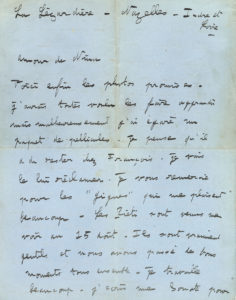 La Légordière - Nazelles - Indre et
Loire
amour de Nine
Voici enfin les photos promises -
J'aurais toutes voulu les faire agrandir
mais malheureusement j'ai égaré un
paquet de pellicules. Je pense qu'il
a du rester chez François. Je vais
le lui réclamer. Je vous remercie
pour les "figues" qui me plaisent
beaucoup - Les sont venus me
voir au 15 août. Ils sont vraiment
gentils et nous avons passé de bons
moments tous ensemble - Je travaille
beaucoup - j' me pour